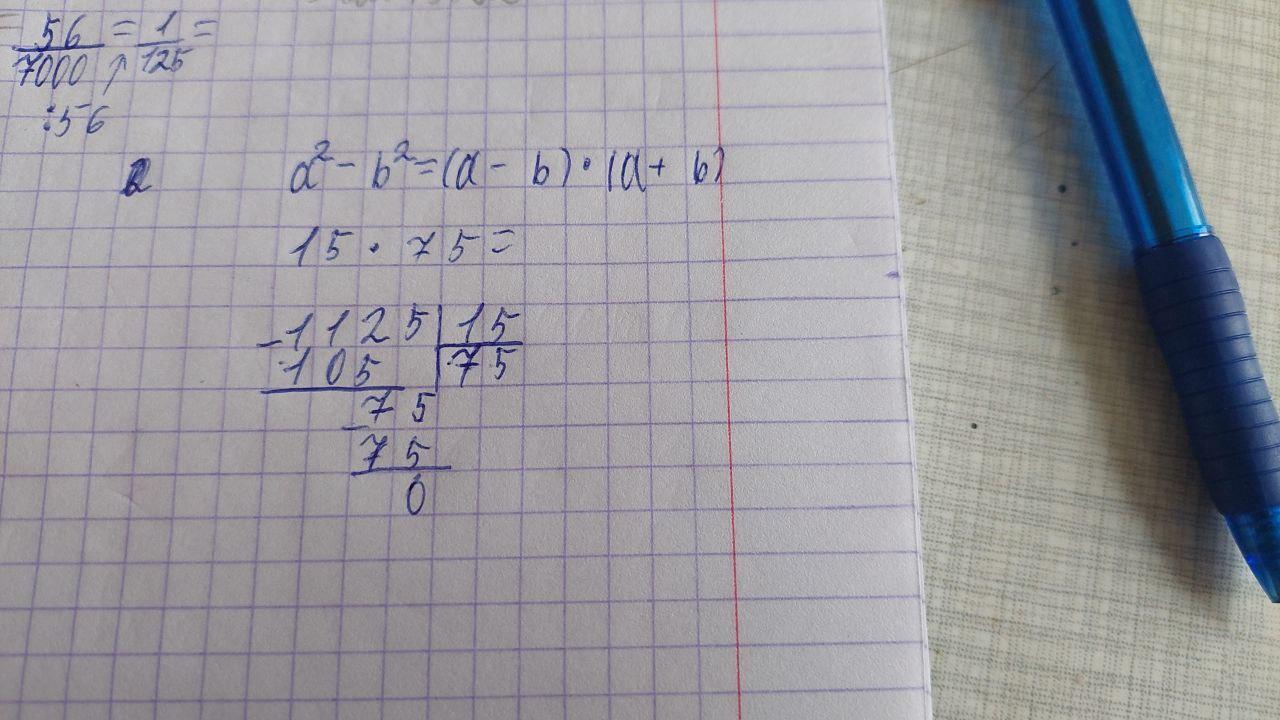 56/7000 = 1/125 =
:56
a² - b² = (a - b) · (a + b)
15 · 75 =
-1125 | 15
105 | 75
-75
75
0